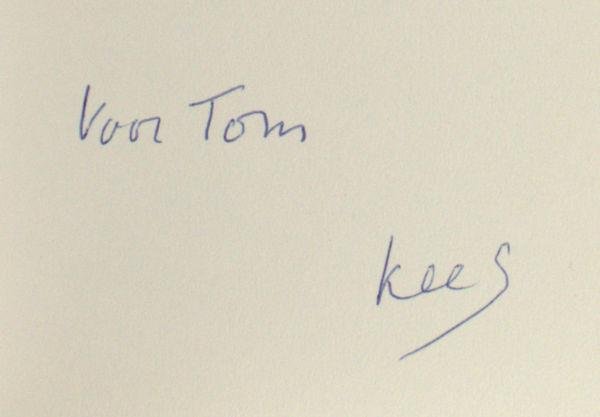 Voor Tom
Kees